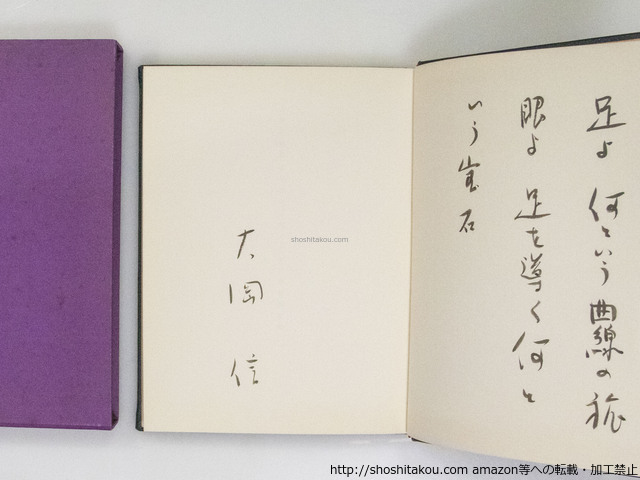 足よ 何という曲線の旅
眼よ 足を導く何と
いう宝石
大岡 信
shoshitakou.com
http://shoshitakou.com amazon等への転載・加工禁止